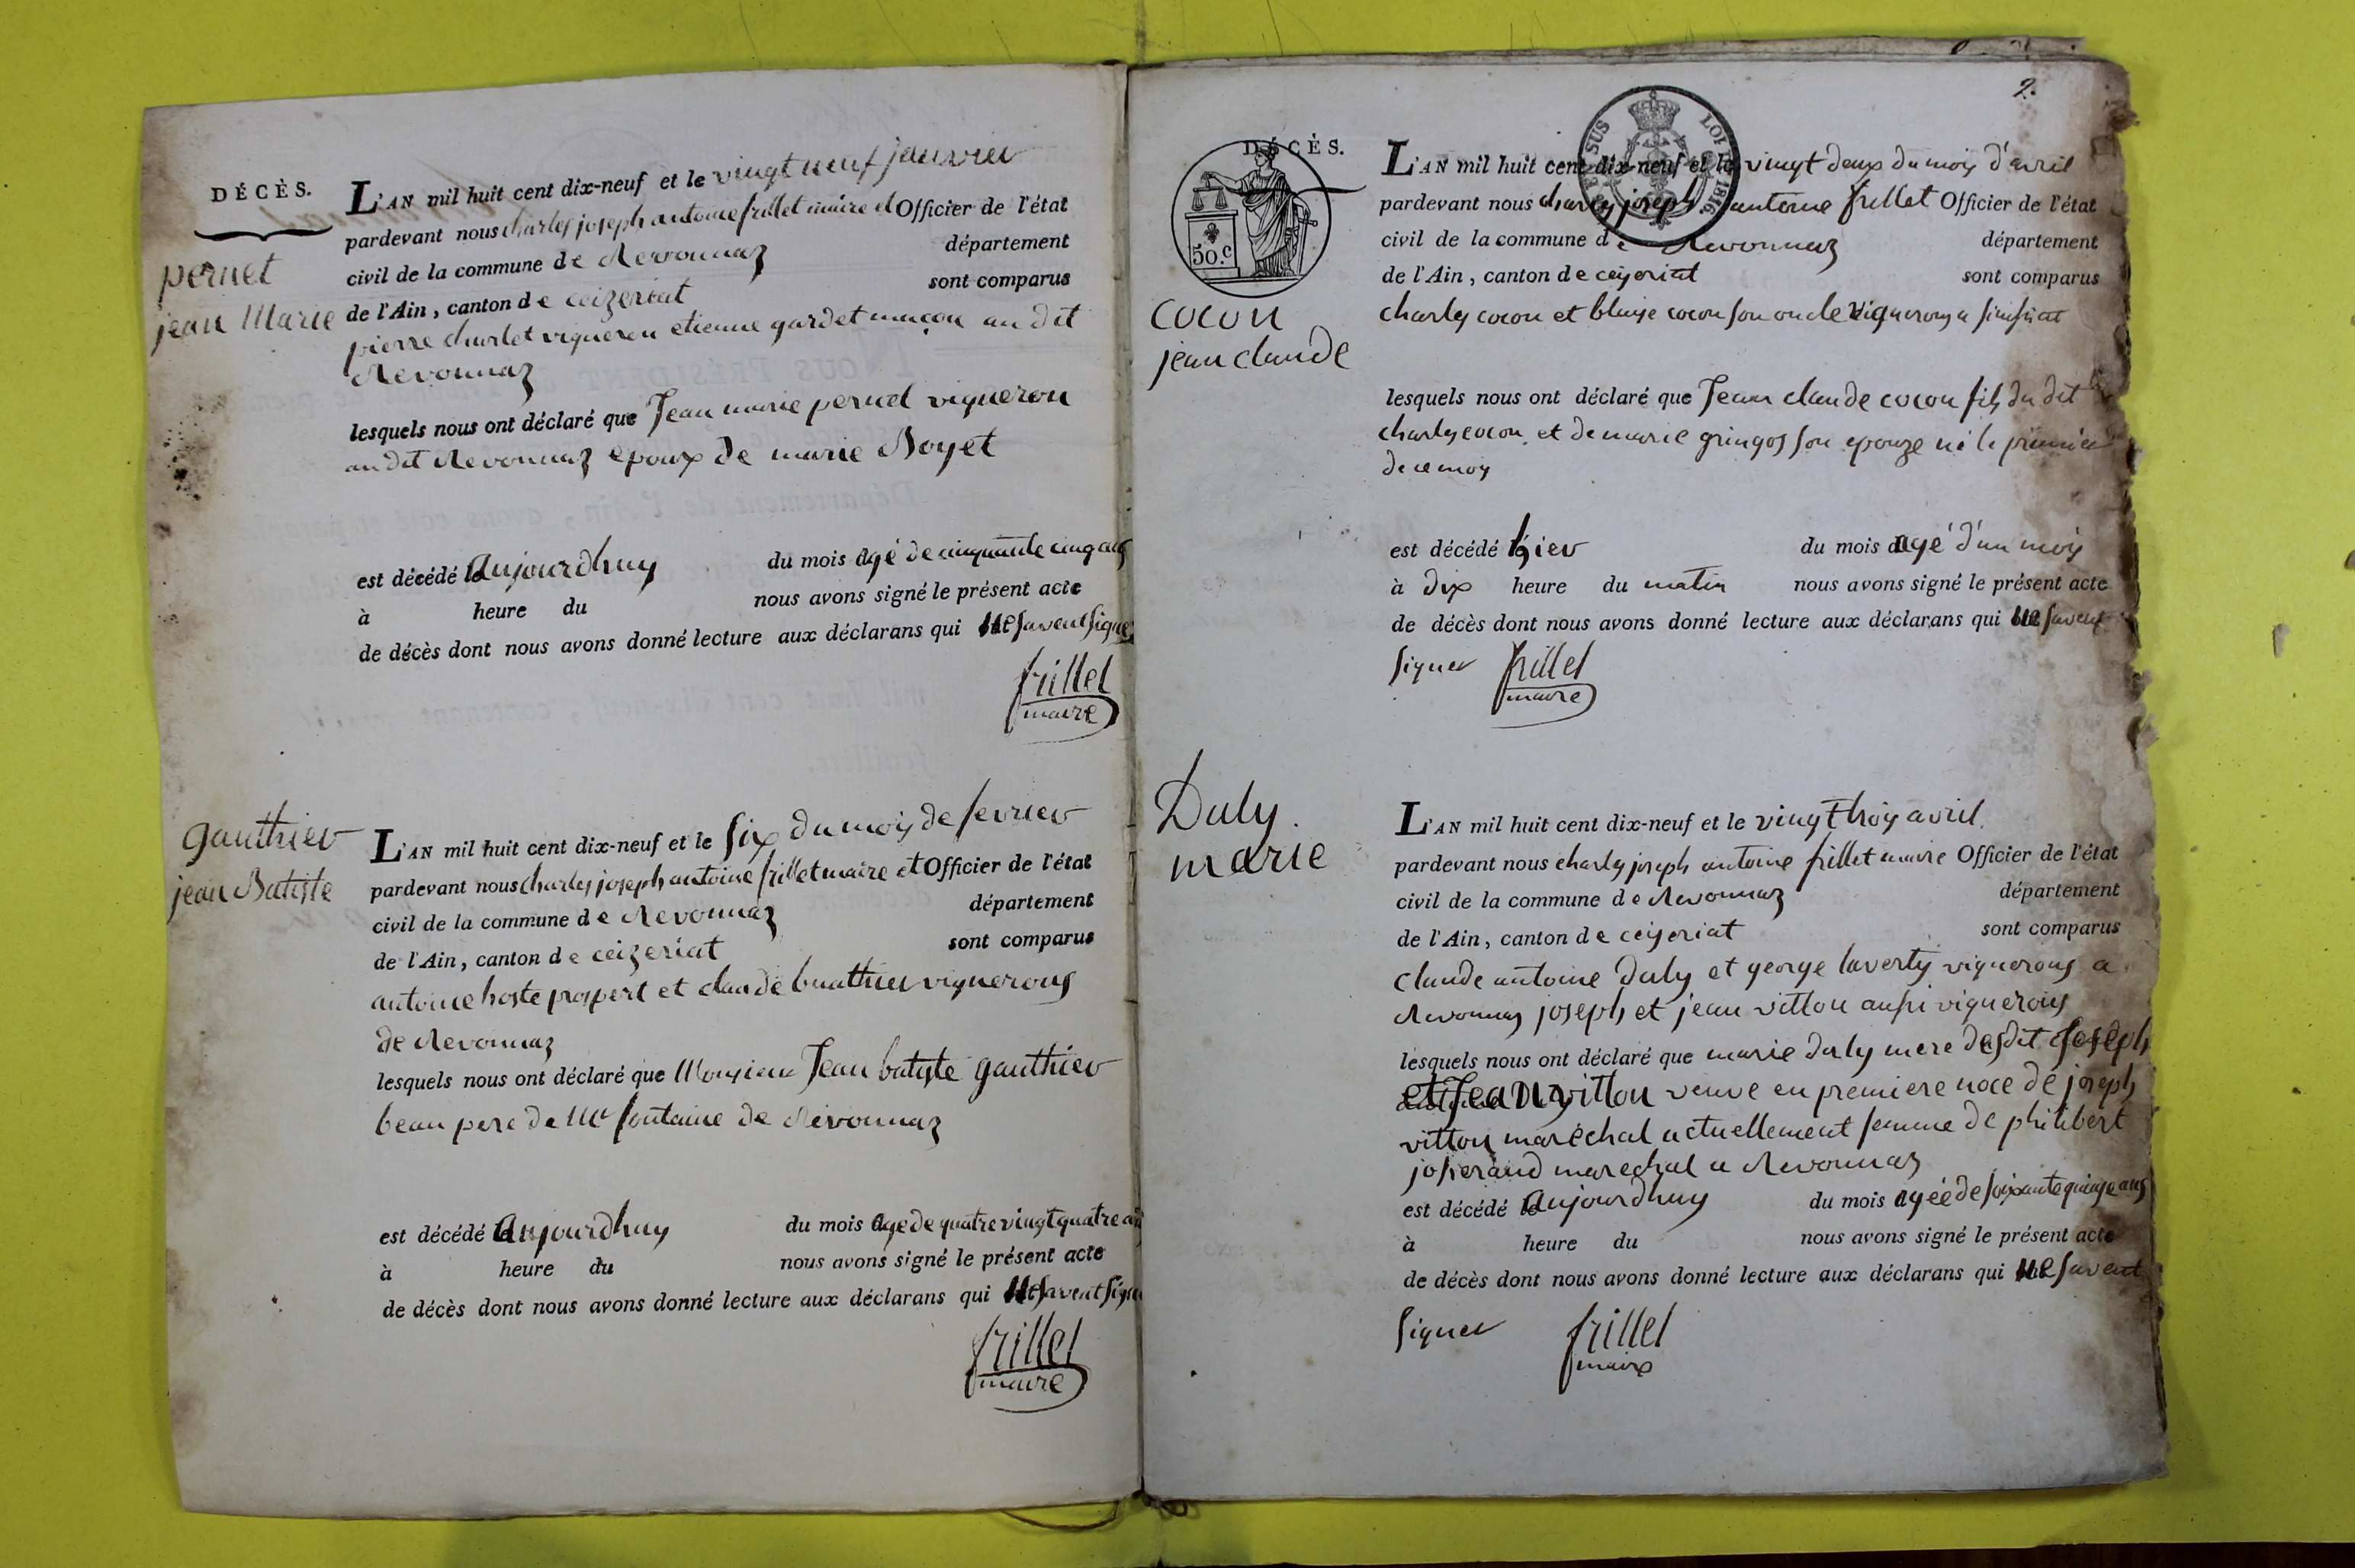 DÉCÈS.
pernet
jean Marie
L'AN mil huit cent dix-neuf et le vingt neuf janvier
pardevant nous charles joseph antoine frillet maire et Officier de l'état
civil de la commune de Revonnaz département
de l'Ain, canton de ceizeriat sont comparus
pierre charlet vigneron etienne gardet maçon au dit
Revonnaz
lesquels nous ont déclaré que Jean marie pernet vigneron
au dit Revonnaz epoux de marie Boyet
est décédé le aujourdhuy du mois agé de cinquante cinq ans
à heure du nous avons signé le présent acte
de décès dont nous avons donné lecture aux déclarans qui ne savent signer
frillet
maire
gauthier
jean Batiste
L'AN mil huit cent dix-neuf et le six du mois de fevrier
pardevant nous charles joseph antoine frillet maire et Officier de l'état
civil de la commune de Revonnaz département
de l'Ain, canton de ceizeriat sont comparus
antoine hoste prospert et claude buathier vignerons
de Revonnaz
lesquels nous ont déclaré que Monsieur Jean batiste gauthier
beau pere de Mr fontaine de Revonnaz
est décédé le aujourdhuy du mois agé de quatre vingt quatre an
à heure du nous avons signé le présent acte
de décès dont nous avons donné lecture aux déclarans qui ne savent signe
frillet
maire
2.
DÉCÈS.
50.c
SUS LOI DE 1816
cocon
jean claude
L'AN mil huit cent dix-neuf et le vingt deux du mois d'avril
pardevant nous charles joseph antoine frillet Officier de l'état
civil de la commune de Revonnaz département
de l'Ain, canton de ceyseriat sont comparus
charles cocon et blaise cocon son oncle vignerons a
lesquels nous ont déclaré que Jean claude cocon fils du dit
charles cocon et de marie gringos son epouze né le premier
de ce mois
est décédé hier du mois agé d'un mois
à dix heure du matin nous avons signé le présent acte
de décès dont nous avons donné lecture aux déclarans qui ne savent
signer frillet
maire
Duly.
marie
L'AN mil huit cent dix-neuf et le vingt trois avril
pardevant nous charles joseph antoine frillet maire Officier de l'état
civil de la commune de Revonnaz département
de l'Ain, canton de ceyseriat sont comparus
claude antoine Duly et george laverty vignerons a
Revonnaz joseph et jean vittou aussi vignerons
lesquels nous ont déclaré que marie duly mere desdit Joseph
et Jean vittou veuve en premiere noce de joseph
vittou maréchal actuellement femme de philibert
josserand marechal a Revonnaz
est décédé le aujourdhuy du mois agéé de soixante quinze ans
à heure du nous avons signé le présent acte
de décès dont nous avons donné lecture aux déclarans qui ne savent
signer frillet
maire